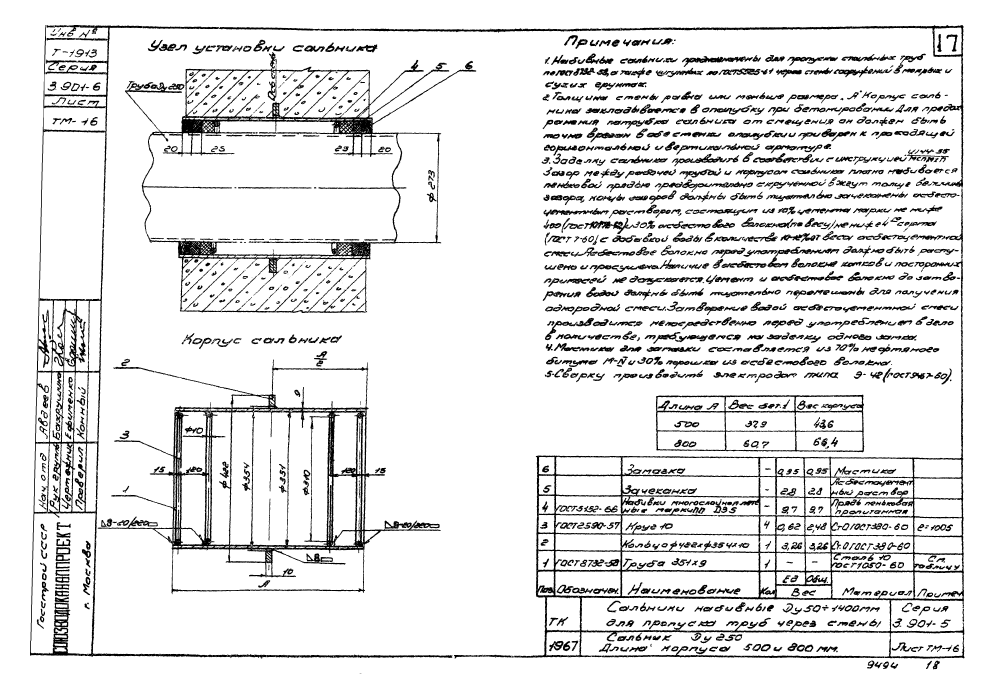 17
Инв №
Т-1913
Серия
3.901-6
Лист
ТМ-16
Узел установки сальника
Труба Ду 250
4 5 6
20 25 25 20
ф 273
Корпус сальника
2
А/2
ф10
3
15 120 ф422 ф354 ф351 ф310 120 15
1
10
А
Нач. отд Авдеев
Рук группы Бахрушина
Чертежник Ефименко
Проверил Конный
Госстрой СССР
СОЮЗВОДОКАНАЛПРОЕКТ
г. Москва
Примечания:
1. Набивные сальники предназначены для пропуска стальных труб
по гост 8732-58, а также чугунных по ГОСТ 5525-61 через стены сооружений в мокрых и
сухих грунтах.
2. Толщина стены равна или меньше размера „А" Корпус саль-
ника закладывается в опалубку при бетонировании. Для предох-
ранения патрубка сальника от смещения он должен быть
точно врезан в обе стенки опалубки и приварен к проходящей
горизонтальной и вертикальной арматуре.
3. Заделку сальника производить в соответствии с инструкцией
Зазор между рабочей трубой и корпусом сальника плотно набивается
пеньковой прядью предварительно скрученной в жгут толще
зазора, концы зазоров должны быть тщательно зачеканены асбесто-
цементным раствором, состоящим из 70% цемента марки не ниже
400 и 30% асбестового волокна (по весу) не ниже 4го сорта
(ГОСТ 7-60) с добавкой воды в количестве веса асбестоцементной
смеси. Асбестовое волокно перед употреблением должно быть распу-
шено и просушено. Наличие в асбестовом волокне комков и посторонних
примесей не допускается. Цемент и асбестовое волокно до затво-
рения водой должны быть тщательно перемешаны для получения
однородной смеси. Затворение водой асбестоцементной смеси
производится непосредственно перед употреблением в дело
в количестве, требующемся на заделку одного замка.
4. Мастика для замазки составляется из 70% нефтяного
битума М-IV и 30% порошка из асбестового волокна.
5. Сварку производить электродом типа Э-42 (ГОСТ 9467-60).
Длина А Вес дет.1 Вес корпуса
500 37,9 43,6
800 60,7 66,4
6 Замазка – 0,95 0,95 Мастика
5 Зачеканка – 2,8 2,8 Асбестоцементный раствор
4 ГОСТ 5152-66 Набивки многослойноплетеные марки ПП D35 – 9,7 9,7 Прядь пеньковая пропитанная
3 ГОСТ 2590-57 Круг 10 4 0,62 2,48 Ст.0 ГОСТ 380-60 ℓ=1005
2 Кольцо ф422×ф354×10 1 3,26 3,26 Ст.0 ГОСТ 380-60
1 ГОСТ 8732-58 Труба 351×9 1 – – Сталь 10 ГОСТ 1050-60 См. таблицу
Поз. Обозначен. Наименование Кол Ед. Общ. Вес Материал Примеч
ТК Сальники набивные Ду 50÷1400мм для пропуска труб через стены Серия 3.901-5
1967 Сальник Ду 250 Длина корпуса 500 и 800 мм. Лист ТМ-16
9494 18